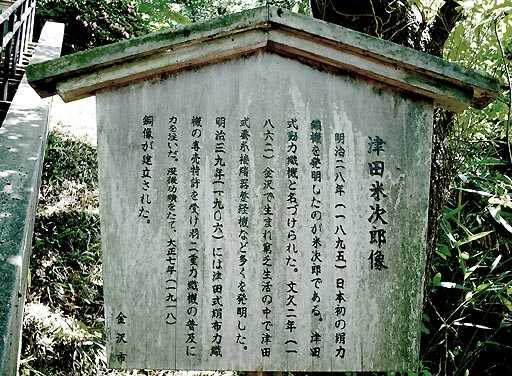 津田米次郎像
明治二八年(一八九五)日本初の絹力
織機を発明したのが米次郎である。津田
式動力織機と名づけられた。文久二年(一
八六二)金沢で生まれ貧乏生活の中で津田
式要糸接積器整経機など多くを発明した。
明治三九年(一九〇六)には津田式絹布力織
機の専売特許を受け羽二重力織機の普及に
力を注いだ。没後功績をたたえ、大正七年(一九一八)
銅像が建立された。
金沢市